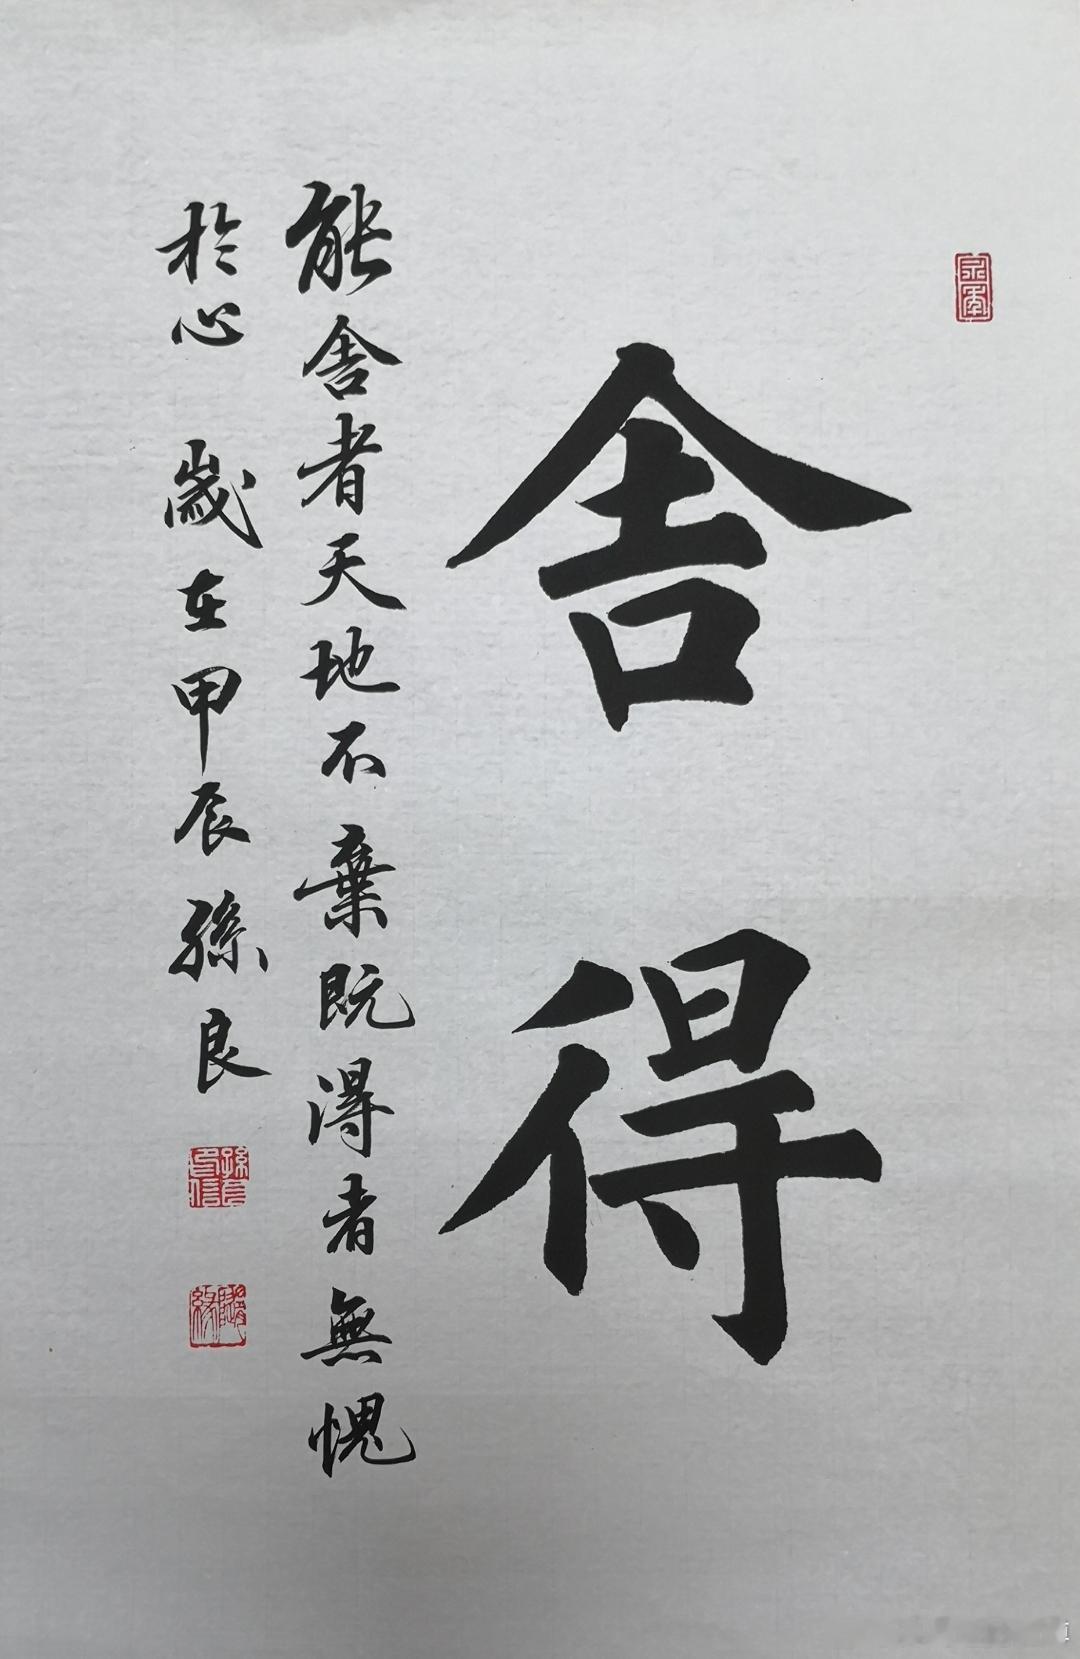 舍得
能舍者天地不棄既得者無愧
於心 歲在甲辰孫良